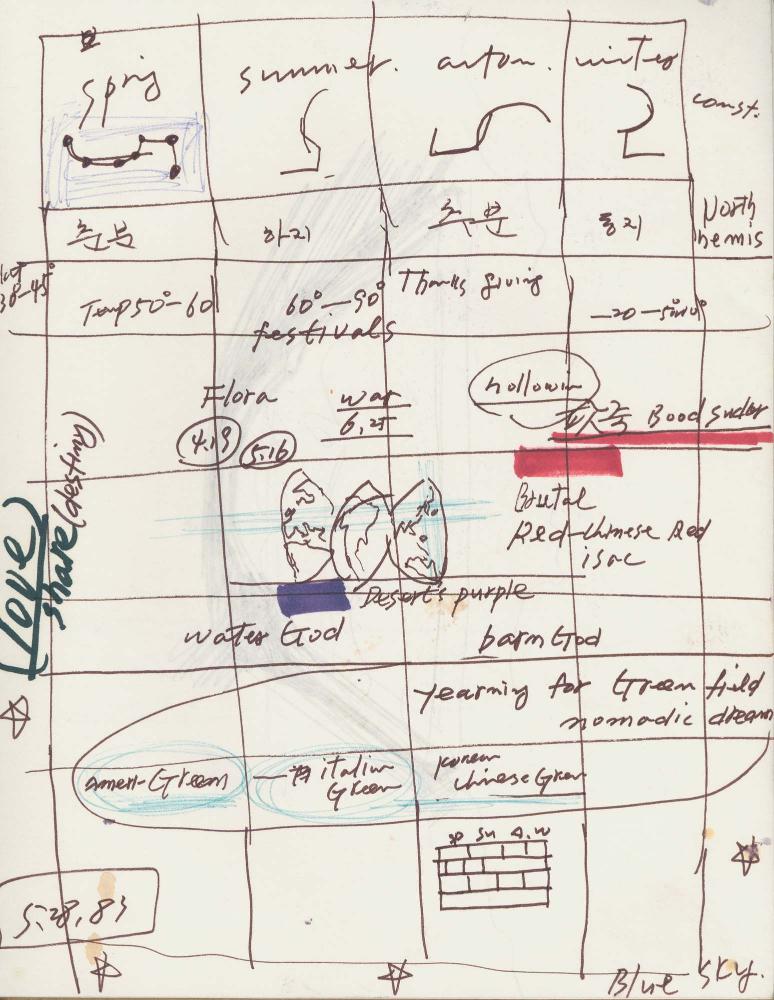 sprig
summer.
autom.
winter
const.
춘분
하지
추분
동지
North
hemis
38-45°
Temp 50°-60
60°-90°
festivals
Thanks giving
Flora
war
6,25
hollowin
4.19
5.16
Bood suder
Brutal
Red-chinese Red
isac
Love
share (destiny)
Desert's purple
water God
barm God
yearning for Green field
nomadic dream
ameri-Green
italian
Green
Korean
chinese Green
sp su A. W
5,28,83
Blue sky.